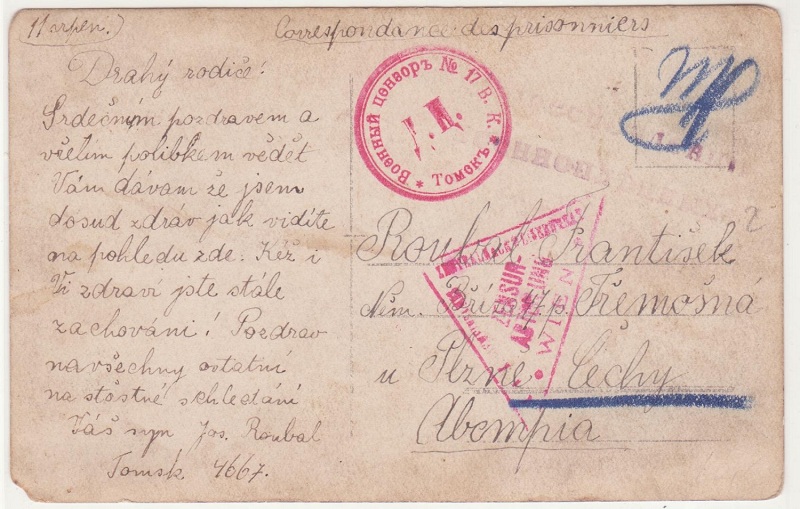 11 srpen.)
Correspondance des prisonniers
Drahý rodiče!
Srdečným pozdravem a
vřelím polibkem vědět
Vám dávam že jsem
dosud zdráv jak vidíte
na pohledu zde. Kéž i
Vi zdraví jste stále
zachováni! Pozdrav
na všechny ostatní
na šťastné schledání
Váš syn Jos. Roubal
Tomsk 4667.
Военный цензоръ № 17 В. К.
* Томскъ. *
Roubal František
Něm. Bříza 47 p. Třemošná
u Plzně Čechy
Абстрія
ZENSUR-
ABTEILUNG
WIEN